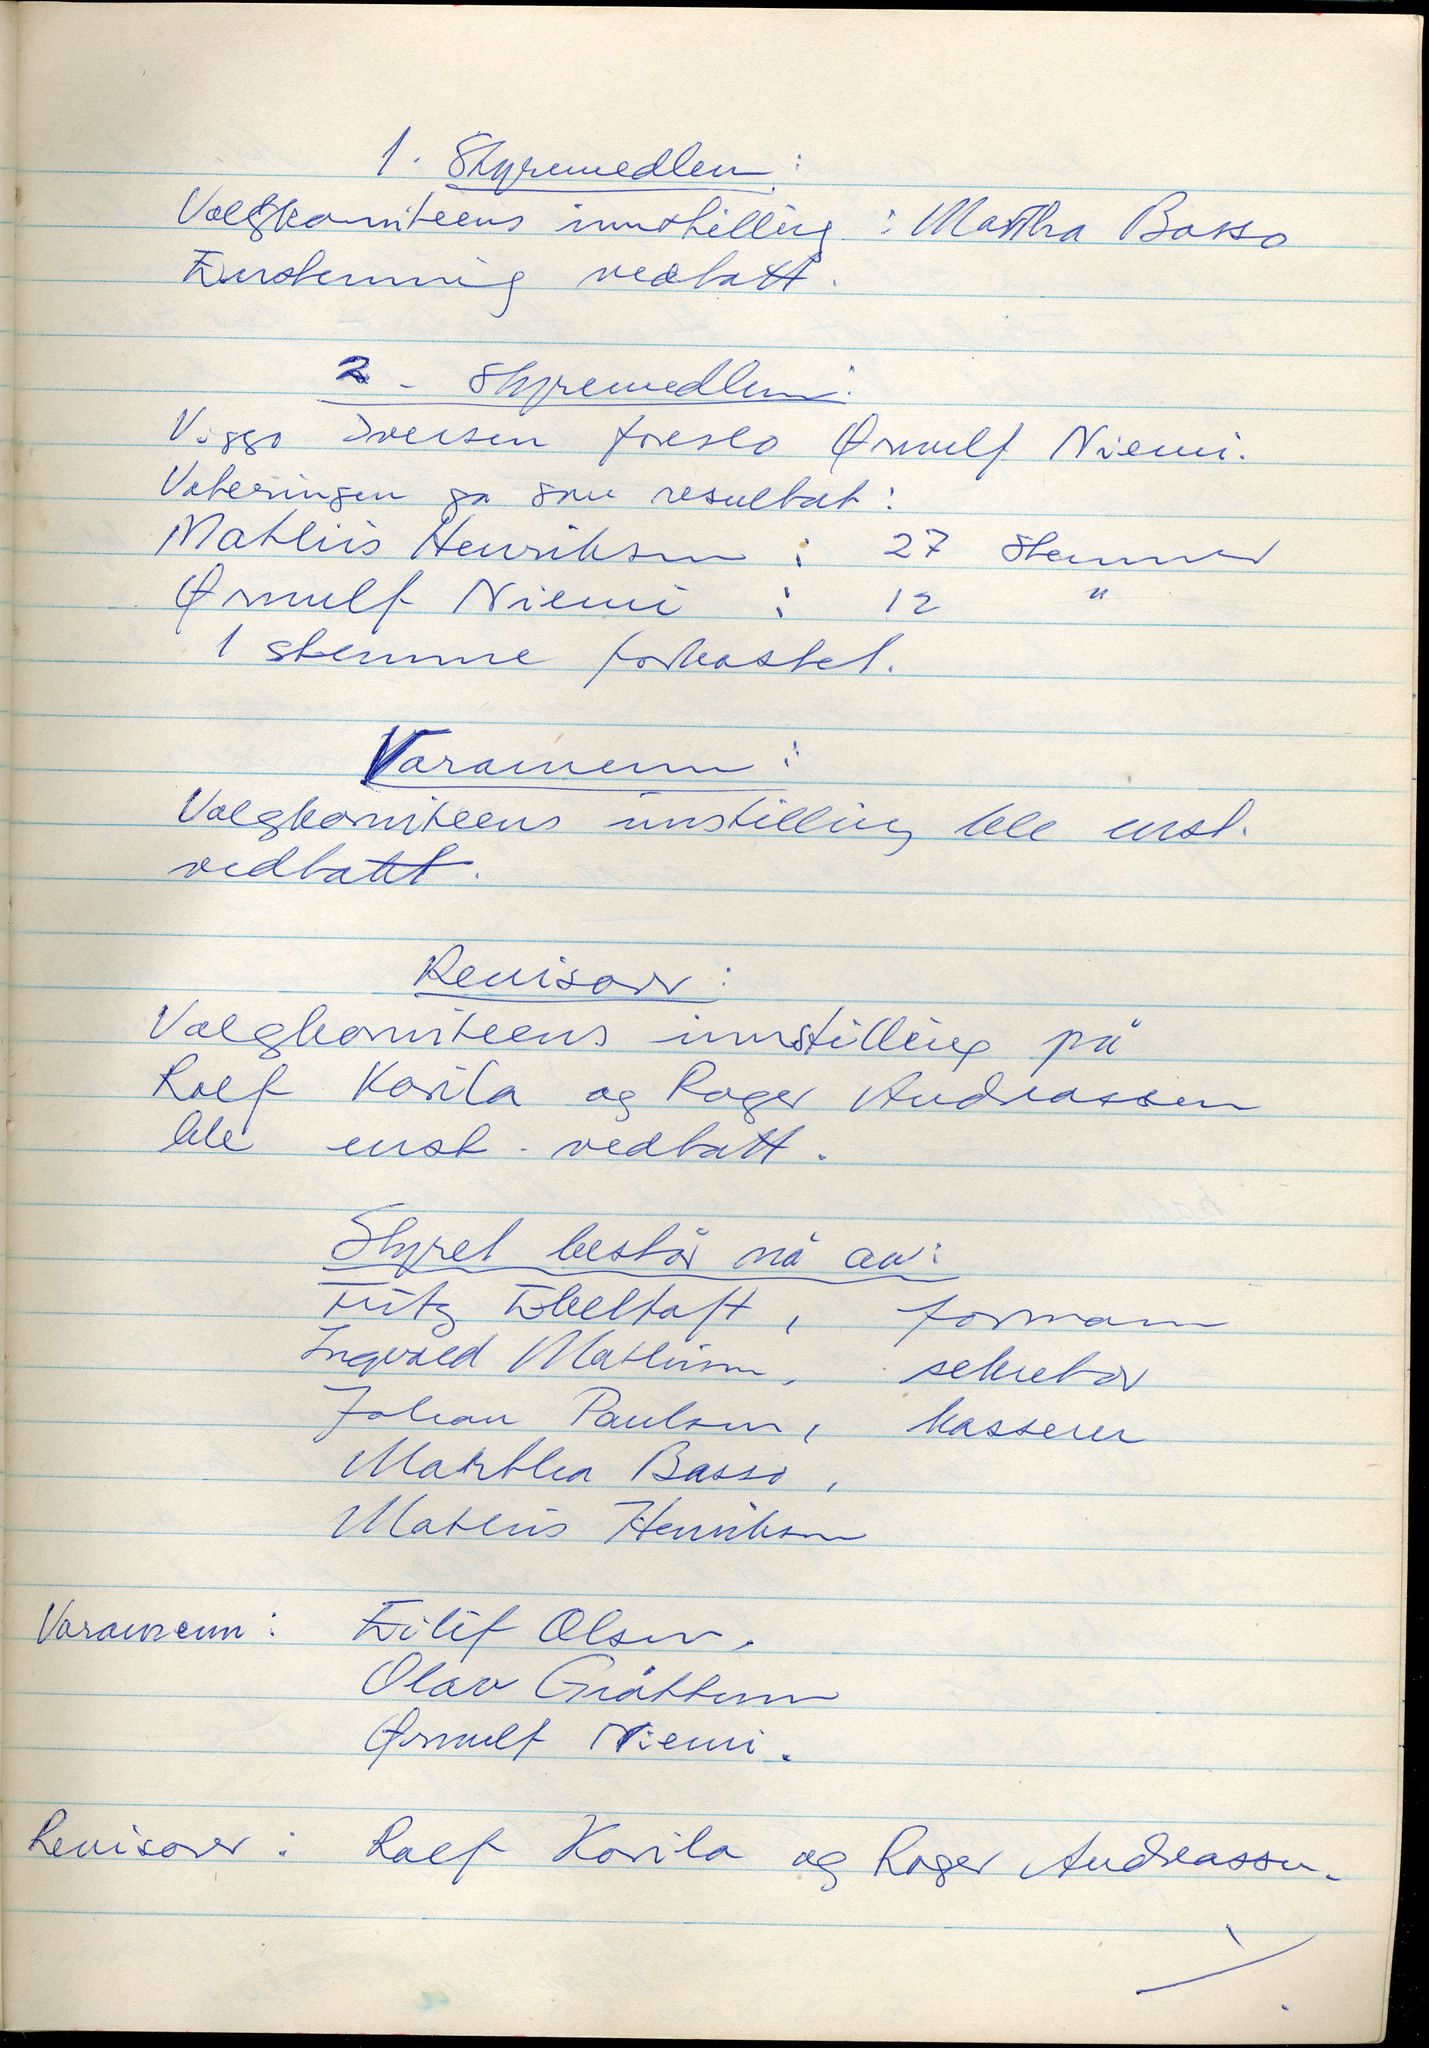 1. Styremedlem:
Valgkomiteens innstilling: Martha Basso
Enstemmig vedtatt.
2. Styremedlem:
Viggo Iversen foreslo Ørnulf Niemi.
Voteringen ga som resultat:
Mathis Henriksen : 27 stemmer
Ørnulf Niemi : 12 "
1 stemme forkastet.
Varamenn:
Valgkomiteens innstilling ble enst.
vedtatt.
Revisorer:
Valgkomiteens innstilling på
Rolf Korila og Roger Andreassen
ble enst. vedtatt.
Styret består nå av:
Fritz Ebeltoft, formann
Ingvald Mathisen, sekretær
Johan Paulsen, kasserer
Martha Basso,
Mathis Henriksen
Varamenn: Eilif Olsen.
Olav Gråttum
Ørnulf Niemi.
Revisorer: Rolf Korila og Roger Andreassen.